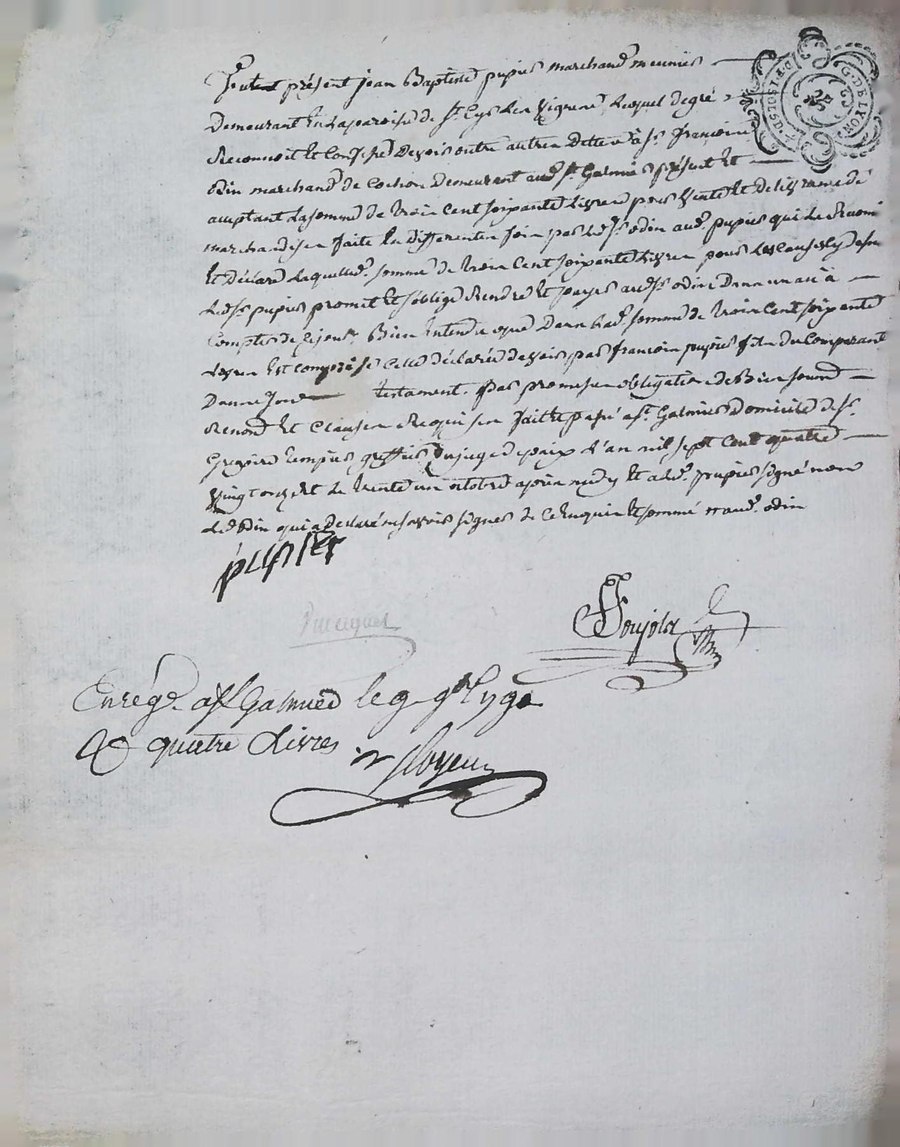 G. DE LYON
Fut présent jean Baptiste pupier marchand meunier
Demeurant En La paroisse de St Cyr Les Vignes Lequel de gré
Reconnoit et Confesse Devoir outre autres Dettes à sr françois
odin marchand de Cochon Demeurant aud. St Galmier présent et
acceptant La somme de trois Cent soixante Livres pour Vente et Délivrance de
marchandises faite En differentes fois par Led. sr odin aud. pupier qui Le Reconnoit
Et Déclare Laquelle d. somme de trois Cent soixante Livres pour Les Causes
Led. sr pupier promet et s'oblige Rendre Et payer aud. sr odin Dans un an à
Compter de Ce jour, Bien Entendu que Dans lad. somme de trois Cent soixante
Livres Est Composé Celle déclarée devoir par françois pupier fils du Comparant
Dans son testament. par promesse obligation de Biens soumd
Renond Et Clauses Requises fait Et passé à St Galmier Domicile de sr
Gregoire greffier Du juge de paix L'an mil sept Cent quatre
Vingt onze et Le trente un octobre après midy Et a led. pupier signé non
Led. odin qui a Déclaré ne savoir signer de Ce Enquis Et sommé aud. odin
pupier
Enrég. a St Galmier le 9. 9bre 1791
R quatre Livres